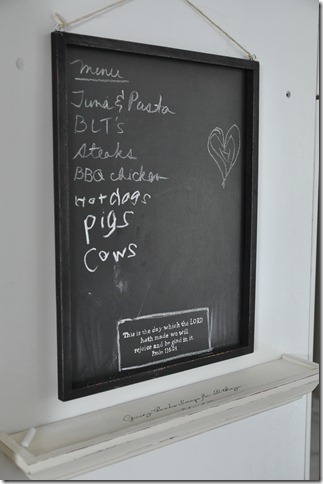 menu
Tuna & Pasta
BLT's
Steaks
BBQ Chicken
Hotdogs
pigs
cows
This is the day which the LORD
hath made we will
rejoice and be glad in it